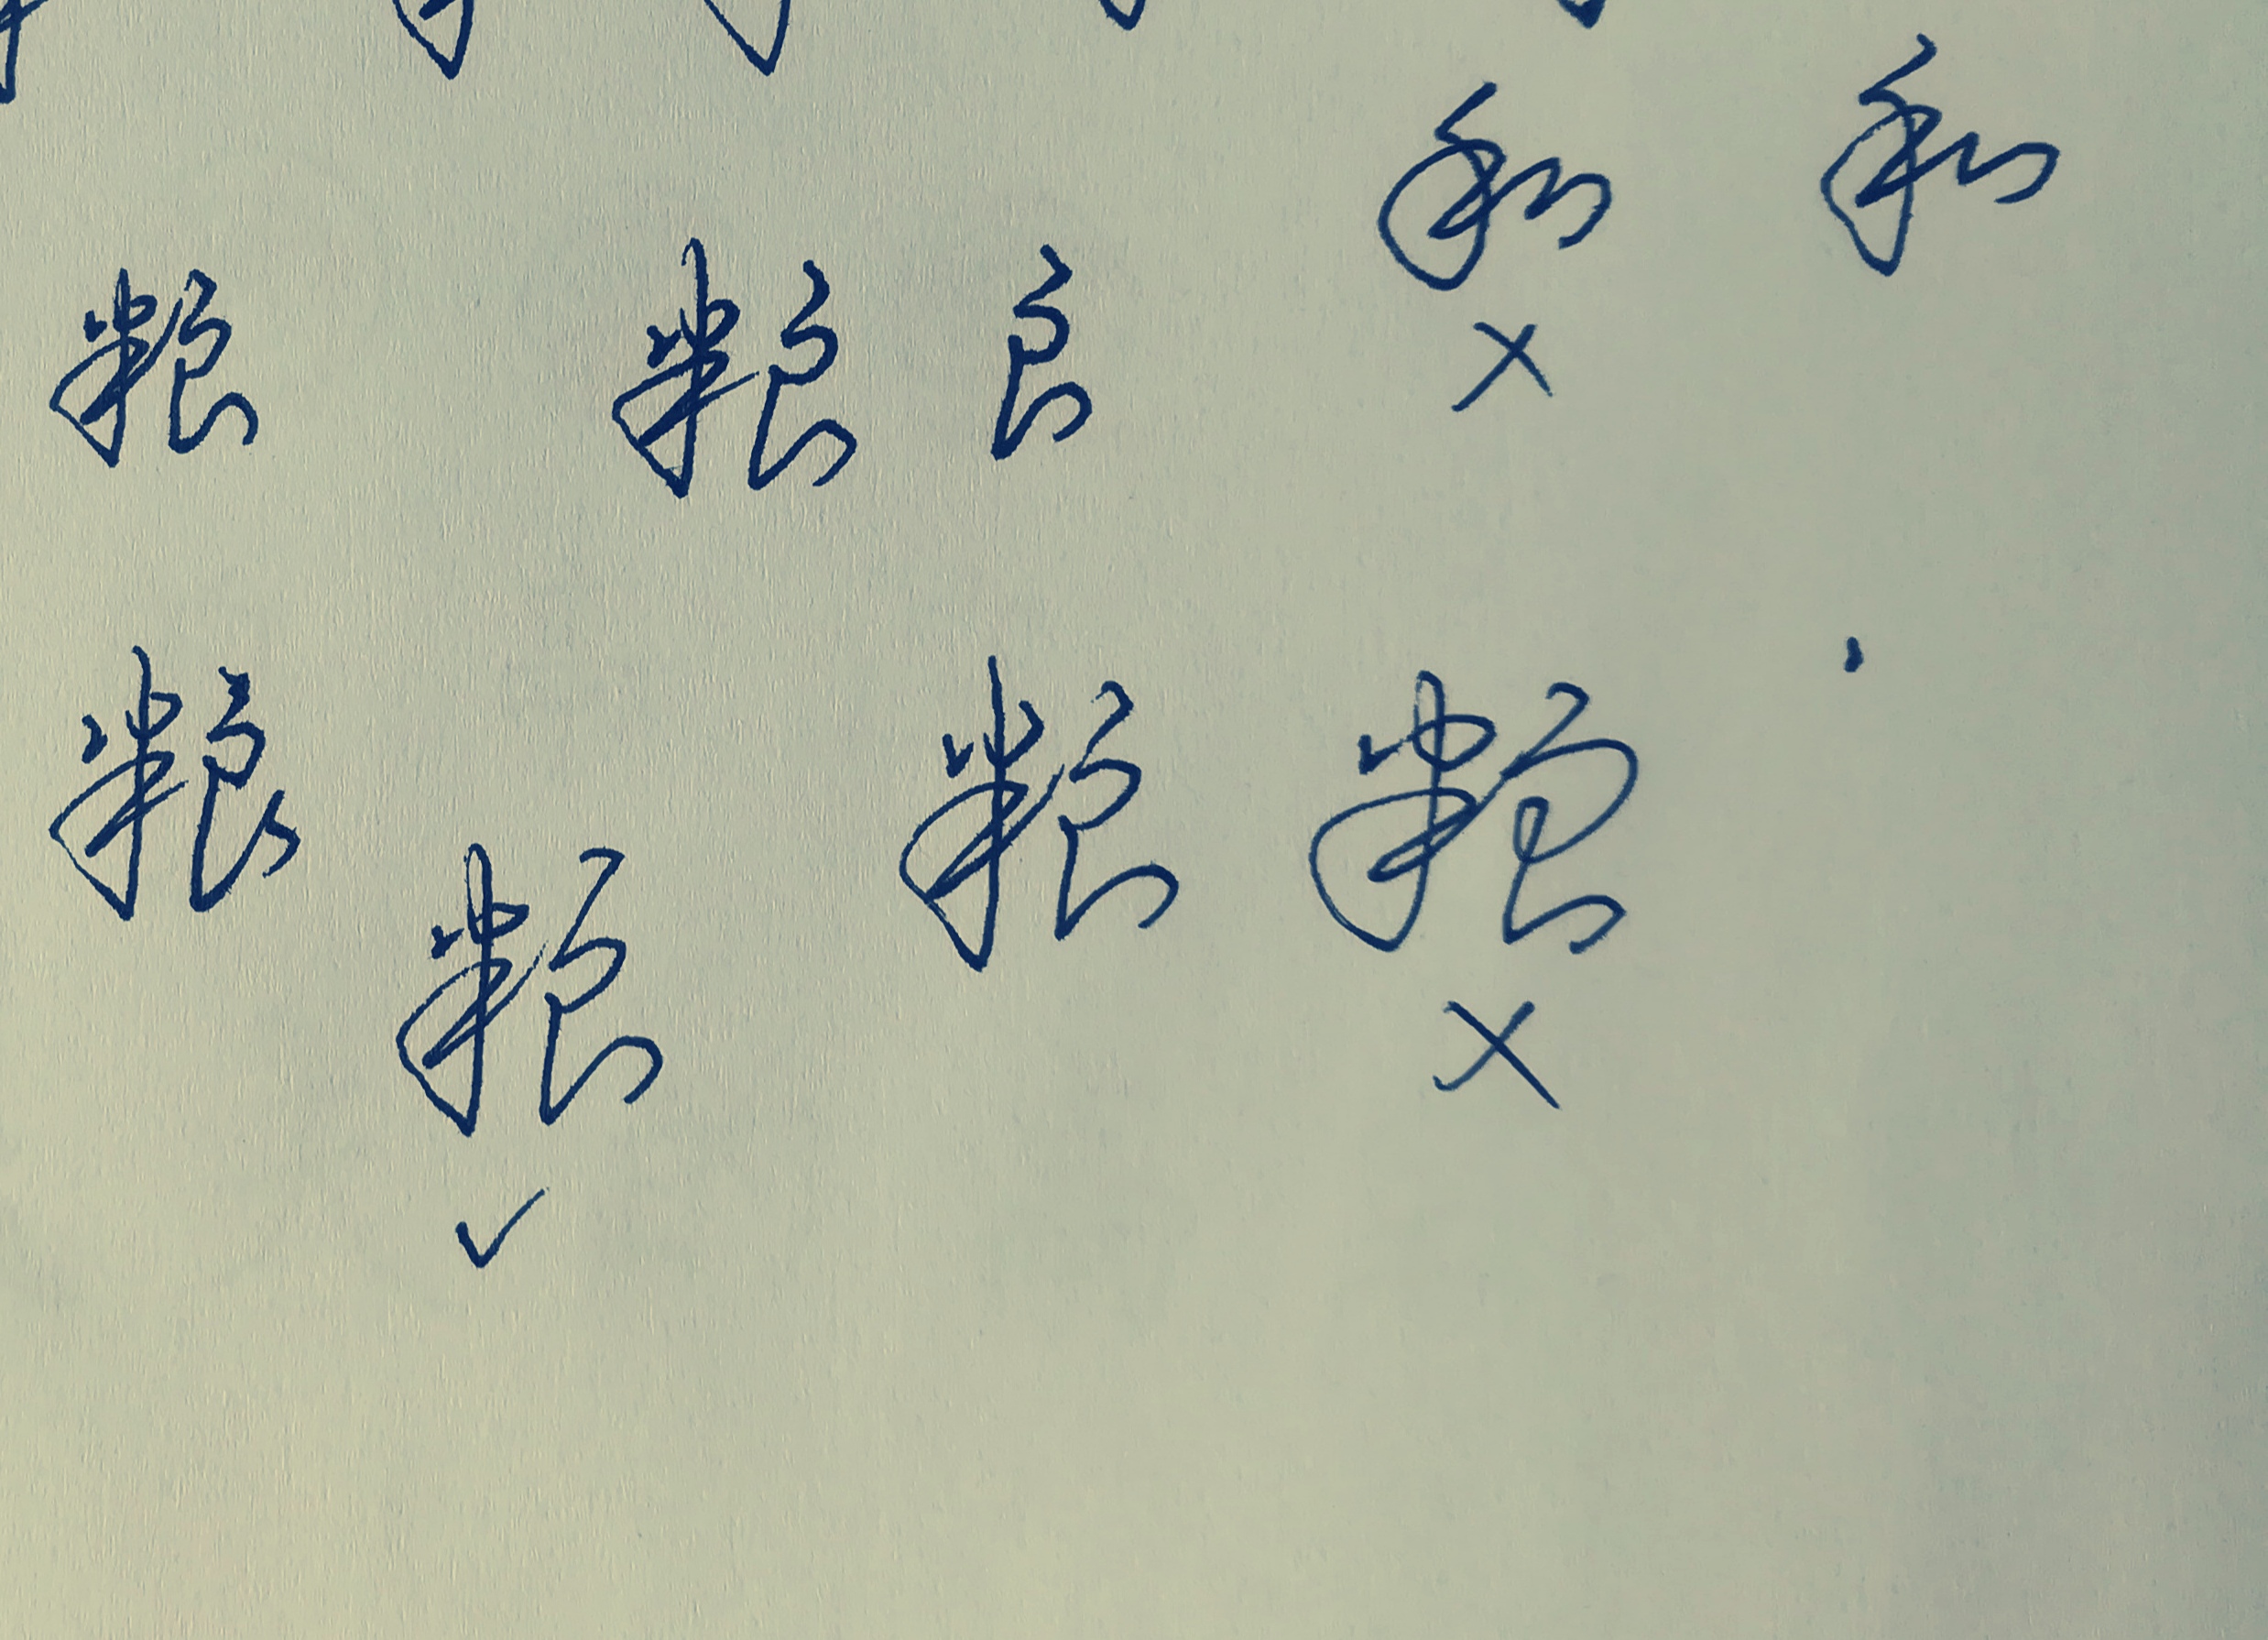 和 和
粮 粮 良
×
粮 粮 粮
粮
×
✓